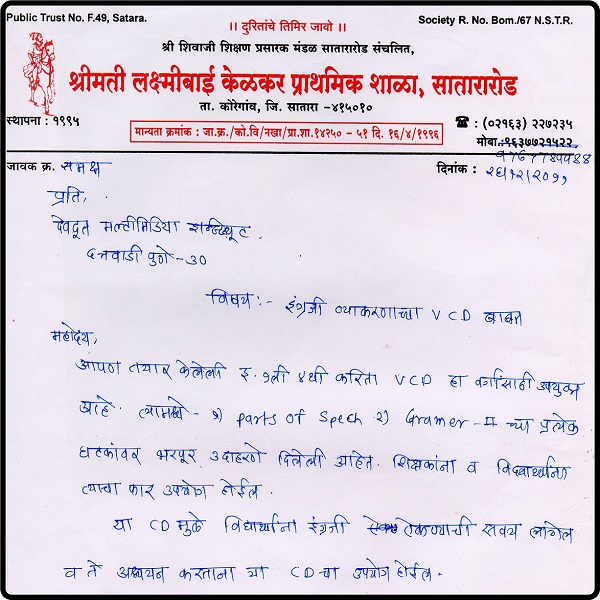 Public Trust No. F.49, Satara.
Society R. No. Bom./67 N.S.T.R.
।। दुरितांचे तिमिर जावो ।।
श्री शिवाजी शिक्षण प्रसारक मंडळ सातारारोड संचलित,
श्रीमती लक्ष्मीबाई केळकर प्राथमिक शाळा, सातारारोड
ता. कोरेगांव, जि. सातारा -४१५०१०
स्थापना : १९९५
मान्यता क्रमांक : जा.क्र./को.वि/नखा/प्रा.शा.१४२५० - ५१ दि. १६/४/१९९६
☎ : (०२१६३) २२७२३५
मोबा.:९६३७७२१५२२
जावक क्र. समक्ष
दिनांक : २६/१२/२०११
प्रति,
देवदूत मल्टीमिडिया
दत्तवाडी पुणे - ३०
विषय :- इंग्रजी व्याकरणाच्या VCD बाबत
महोदय,
आपण तयार केलेली इ. १ली ४थी करिता VCD हा वर्गासाठी उपयुक्त
आहे. त्यामध्ये - १) parts of Spech २) Gramer - II च्या प्रत्येक
घटकांवर भरपूर उदाहरणे दिलेली आहेत. शिक्षकांना व विद्यार्थ्यांना
त्याचा फार उपयोग होईल.
या CD मुळे विद्यार्थ्यांना इंग्रजी ऐकण्याची सवय लागेल
व ते अध्ययन करताना या CD चा उपयोग होईल.